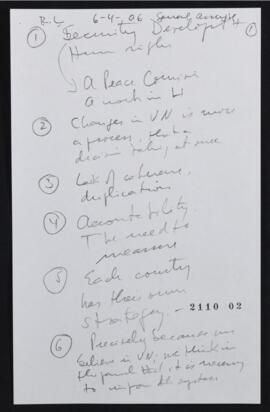 R.L 6-4-06
① Security Development ①
Human rights
A Peace
A work in
② Changes in UN is more
a process, than a
decision taken at once
③ Lack of coherence,
duplications
④ Accountability.
The need to
measure
⑤ Each country
has their own
strategy. - 2110 02
⑥ Precisely because we
believe in UN, we think in
the panel that it is necessary
to the system